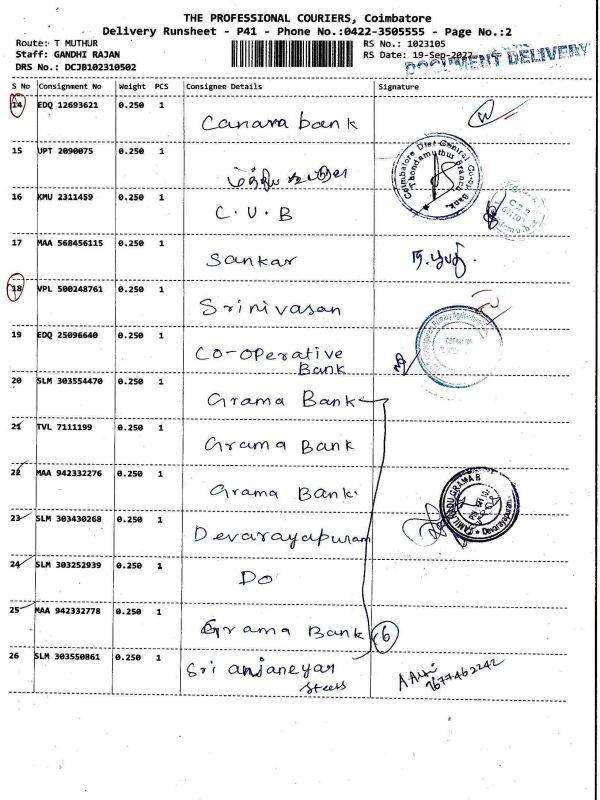 THE PROFESSIONAL COURIERS, Coimbatore
Delivery Runsheet - P41 - Phone No.:0422-3505555 - Page No.:2
Route: T MUTHUR
RS No.: 1023105
Staff: GANDHI RAJAN
RS Date: 19-Sep-2022
DOCUMENT DELIVERY
DRS No.: DCJB102310502
S No Consignment No Weight PCS Consignee Details Signature
14 EDQ 12693621 0.250 1
Canara bank
15 UPT 2090075 0.250 1
Coimbatore Dist Central Co-op. Bank.
Thondamuthur Branch
16 KMU 2311459 0.250 1
C.U.B
17 MAA 568456115 0.250 1
Sankar
18 VPL 500248761 0.250 1
Srinivasan
19 EDQ 25096640 0.250 1
CO-OPerative
Bank
20 SLM 303554470 0.250 1
Grama Bank
21 TVL 7111199 0.250 1
Grama Bank
22 MAA 942332276 0.250 1
Grama Bank.
TAMIL NADU GRAMA B
Devarayapuram
23 SLM 303430268 0.250 1
Devarayapuram
24 SLM 303252939 0.250 1
Do
25 MAA 942332778 0.250 1
Grama Bank 6
26 SLM 303550861 0.250 1
Sri anjaneyar
steels
9677462242